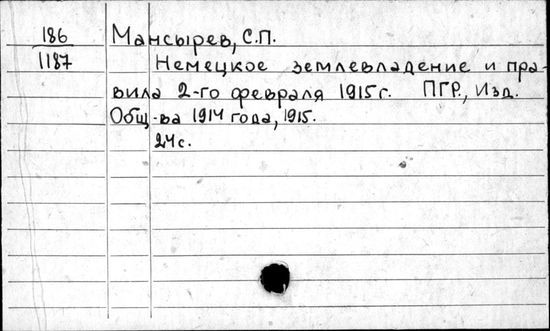 186 Мансырев, С.П.
1187 Немецкое землевладение и пра-
вила 2-го февраля 1915 г. ПГР., Изд.
Общ-ва 1914 года, 1915.
24 с.